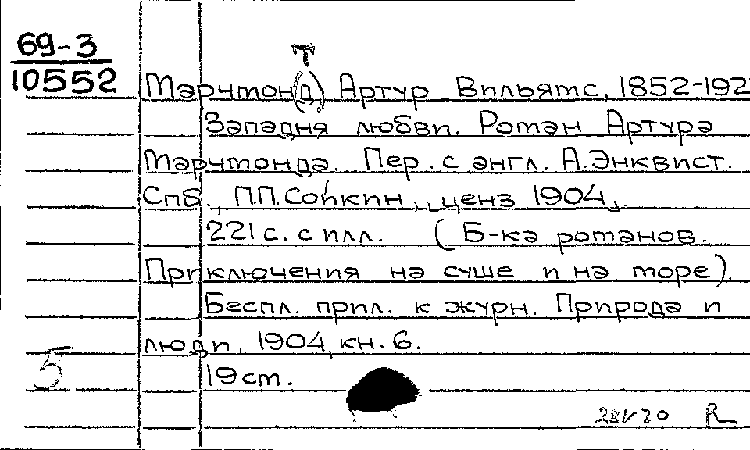 69-3
10552
Т
Марчмон(д) Артур Вильямс, 1852-192
Западня любви. Роман Артура
Марчмонда. Пер. с англ. А. Энквист.
Спб, П.П. Сойкин, ценз 1904,
221 с. с илл. (Б-ка романов.
Приключения на суше и на море).
Беспл. прил. к журн. Природа и
люди, 1904, кн. 6.
5
19 см.
R